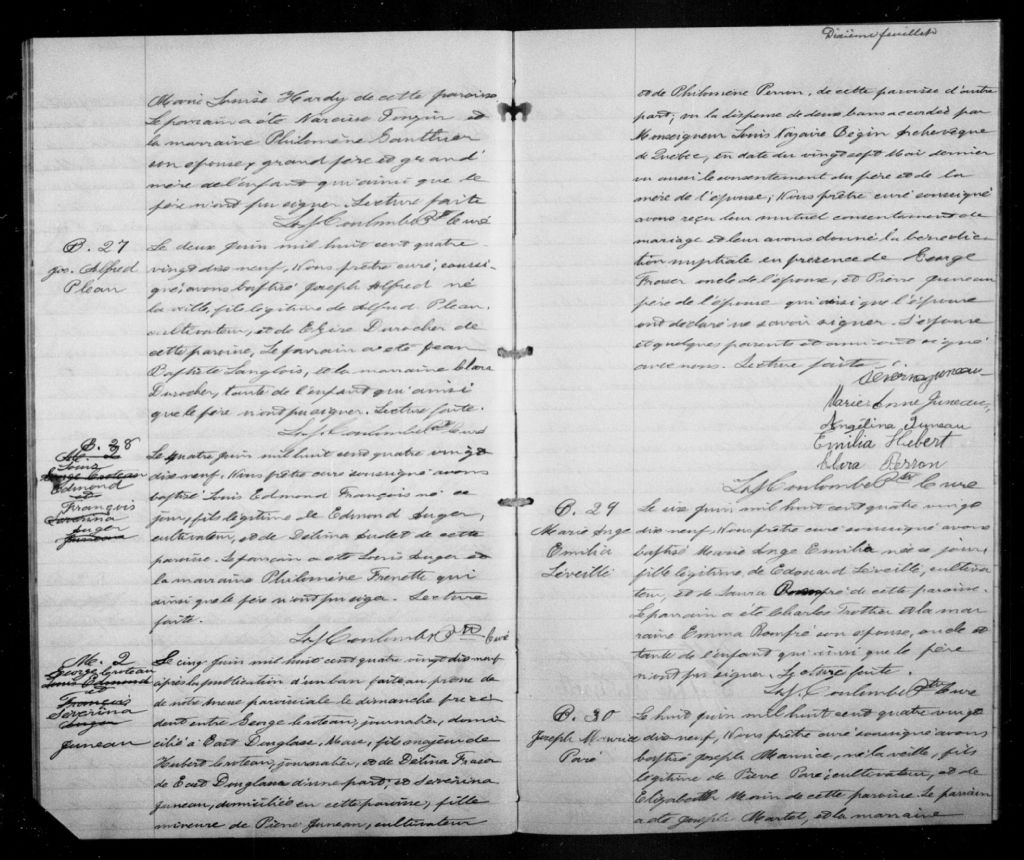 Dixième feuillet
Marie Louise Hardy de cette paroisse
Le parrain a été Narcisse et
la marraine Philomène Gauthier
son epouse, grand père et grand'
mère de l'enfant qui ainsi que le
père n'ont pu signer. Lecture faite
Ls J Coulombe Ptre Curé
B. 27
Jos. Alfred
Plean
Le deux Juin mil huit cent quatre
vingt dix neuf, Nous prêtre curé, soussi-
gné avons baptisé Joseph Alfred né
la veille, fils légitime de Alfred Plean,
cultivateur, et de Durocher de
cette paroisse, Le parrain a été Jean
Baptiste Langlois, et la marraine Clara
Durocher, tante de l'enfant qui ainsi
que le père n'ont pu signer. Lecture faite.
Ls J Coulombe Ptre Curé
B. 28
M. 2
Louis
George Croteau
Edmond
et
François
Severina
Auger
Juneau
Le quatre Juin mil huit cent quatre vingt
dix neuf, Nous prêtre curé soussigné avons
baptisé Louis Edmond François né ce
jour, fils légitime de Edmond Auger,
cultivateur, et de Delina Audet de cette
paroisse. Le parrain a été Louis Auger et
la marraine Philomène Frenette qui
ainsi que le père n'ont pu signer. Lecture
faite.
Ls J Coulombe Ptre Curé
M. 2
George Croteau
Louis Edmond
et
François
Severina
Auger
Juneau
Le cinq Juin mil huit cent quatre vingt dix neuf
après la publication d'un ban faite au prone de
de notre messe paroissiale le dimanche précé
dent entre George Croteau, journalier, domi
cilié à East Douglass, Mass, fils majeur de
Hubert Croteau, journalier, et de Delina Fraser
de East Douglass d'une part; et Severina
Juneau, domiciliée en cette paroisse, fille
mineure de Pierre Juneau, cultivateur
et de Philomène Perron, de cette paroisse d'autre
part; vu la dispense de deux bans accordée par
Monseigneur Louis Nazaire Bégin Archevêque
de Québec, en date du vingt sept Mai dernier
vu aussi le consentement du père et de la
mère de l'épouse; Nous prêtre curé soussigné
avons reçu leur mutuel consentement de
mariage et leur avons donné la bénédic
tion nuptiale en présence de George
Fraser oncle de l'épouse, et Pierre Juneau
père de l'épouse qui ainsi que l'épouse
ont declaré ne savoir signer. L'épouse
et quelques parents et amis ont signé
avec nous. Lecture faite.
Severina Juneau
Marie Anne Juneau,
Angélina Juneau
Emilia Hebert
Elvira Perron
Ls J Coulombe Ptre Curé
B. 29
Marie Ange
Emilia
Léveillé
Le six Juin mil huit cent quatre vingt
dix neuf, Nous prêtre curé soussigné avons
baptisé Marie Ange Emilia née ce jour,
fille légitime de Edouard Léveillé, cultiva
teur, et de Laura de cette paroisse.
Le parrain a été Charles Trother et la mar
raine Emma Romfré son epouse, oncle et
tante de l'enfant qui ainsi que le père
n'ont pu signer. Lecture faite.
Ls J. Coulombe Ptre Curé
B. 30
Joseph Maurice
Paré
Le huit Juin mil huit cent quatre vingt
dix neuf, Nous prêtre curé soussigné avons
baptisé Joseph Maurice, né la veille, fils
légitime de Pierre Paré, cultivateur, et de
Elizabeth Morin de cette paroisse. Le parrain
a été Joseph Martel, et la marraine